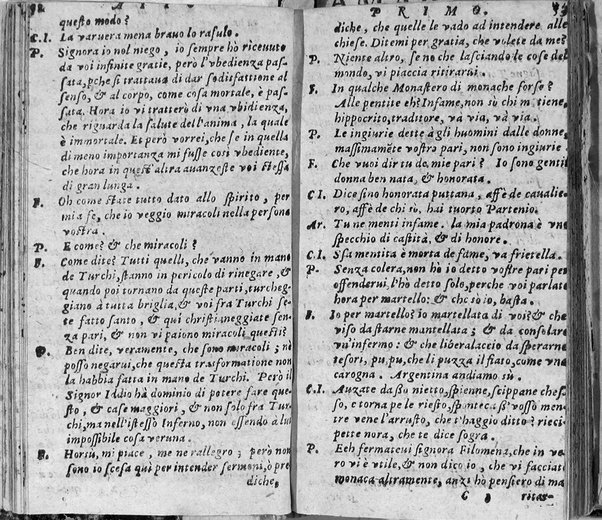 A T T O
questo modo?
C.I. La varuera mena bravo lo rasulo.
P. Signora io nol niego, io sempre hò riceuuto
da voi infinite gratie, però l'vbedienza pas-
sata, pche si trattaua di dar sodisfattione al
senso, & al corpo, come cosa mortale, è pas-
sata. Hora io vi tratterò di vna vbidienza,
che riguarda la salute dell'anima, la quale
è immortale. Et però vorrei, che se in quella
di meno importanza mi fusse così vbediente,
che hora in quest'altra auanzeste voi stessa
di gran lunga.
F. Oh come state tutto dato allo spirito, per
mia fe, che io veggio miracoli nella persona
vostra.
P. E come? & che miracoli?
F. Come dite? Tutti quelli, che vanno in mano
de Turchi, stanno in pericolo di rinegare, &
quando poi tornano da queste parti, turcheg-
giano à tutta briglia, & voi fra Turchi se-
te fatto santo, & qui christianeggiate sen-
za pari, & non vi paiono miracoli questi?
P. Ben dite, veramente, che sono miracoli; nè
posso negarui, che questa trasformatione non
la habbia fatta in mano de Turchi. Però il
Signor Iddio hà dominio di potere fare que-
sto, & case maggiori, & non solo fra Tur-
chi, ma nell'istesso Inferno, non essendo à lui
impossibile cosa veruna.
F. Horsù, mi piace, me ne rallegro; però non
sono io scesa quì per intender sermoni, ò pre
diche,
P R I M O.
diche, che quelle le vado ad intendere alle
chiese. Ditemi per gratia, che volete da me?
P. Niente altro, se no che lasciando le cose del
mondo, vi piaccia ritirarui.
F. In qualche Monastero di monache forse?
Alle pentite eh? Infame, non sò chi m'tiene,
hippocrito, traditore, và via, và via.
P. Le ingiurie dette à gli huomini dalle donne,
massimamẽte vostri pari, non sono ingiurie.
F. Che vuoi dir tu de mie pari? Io sono gentil
donna ben nata, & honorata.
C I. Dice sino honorata puttana, affè de caualie-
ro, affè de chi sò, hai tuorto Partenio.
Ar. Tu ne menti infame. la mia padrona è vno
specchio di castità, & di honore.
C I. Ssa mentita è morta de fame, va frietella.
P. Senza colera, non hò io detto vostre pari per
offenderui, l'hò detto solo, perche voi parlate
hora per martello: & che sò io, basta.
F. Io per martello? io martellata di voi? & che
viso da starne mantellata; & da consolare
vn'infermo: & che liberalaccio da sperarne
tesori, pu, pu, che li puzza il fiato, come vna
carogna. Argentina andiamo sù.
C.I. Auzate da sso nietto, spienne, scippane ches-
so, e torna pe le riesto,
tre vene l'arrusto, che t'haggio ditto? rieci-
pette nora, che te dice sogra.
P. Eeh fermateui signora Filomena, che in ve-
ro vi è vtile, & non dico io, che vi facciate
monaca altramente, anzi hò pensiero di ma
C ritar-